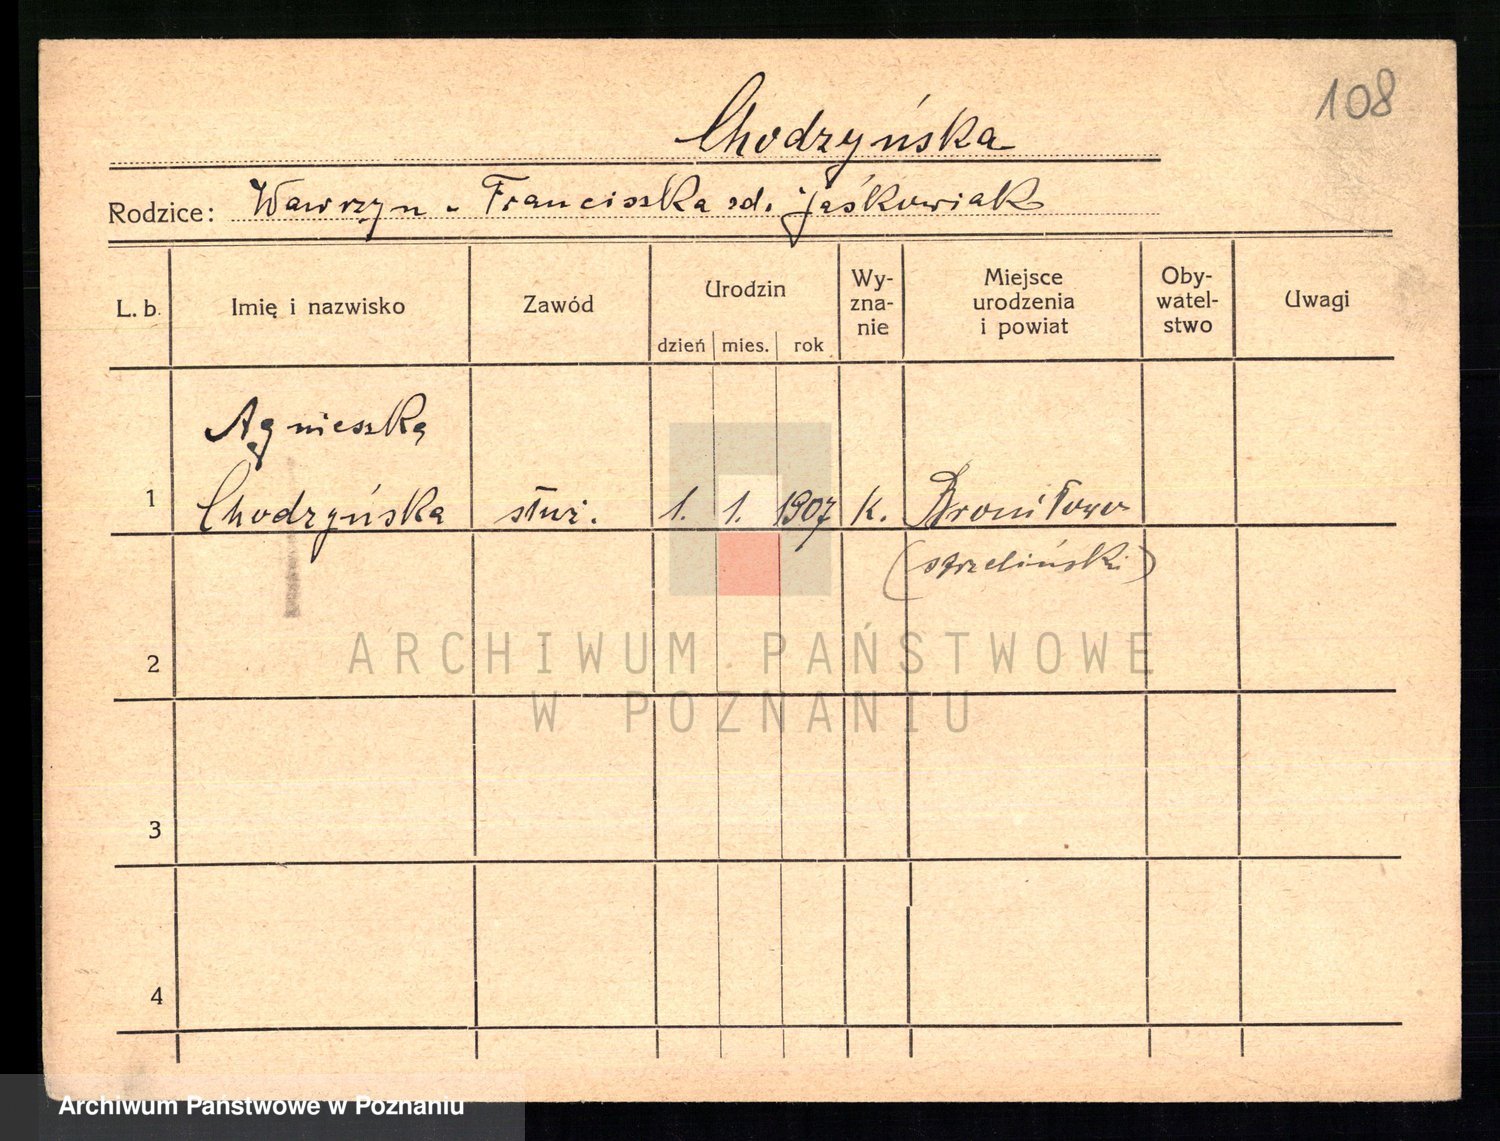 108
Chodzyńska
Rodzice: Wawrzyn - Franciszka zd. Jaśkowiak
L. b. Imię i nazwisko Zawód Urodzin Wy-zna-nie Miejsce urodzenia i powiat Oby-watel-stwo Uwagi
dzień mies. rok
Agnieszka
1 Chodzyńska służ. 1. 1. 1907 K. Broniłowo
(strzeliński)
2
3
4
ARCHIWUM PAŃSTWOWE
W POZNANIU
Archiwum Państwowe w Poznaniu